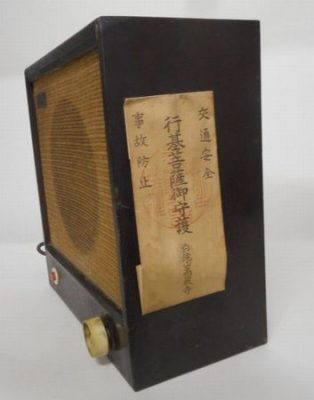 交通安全
行基菩薩御守護
事故防止